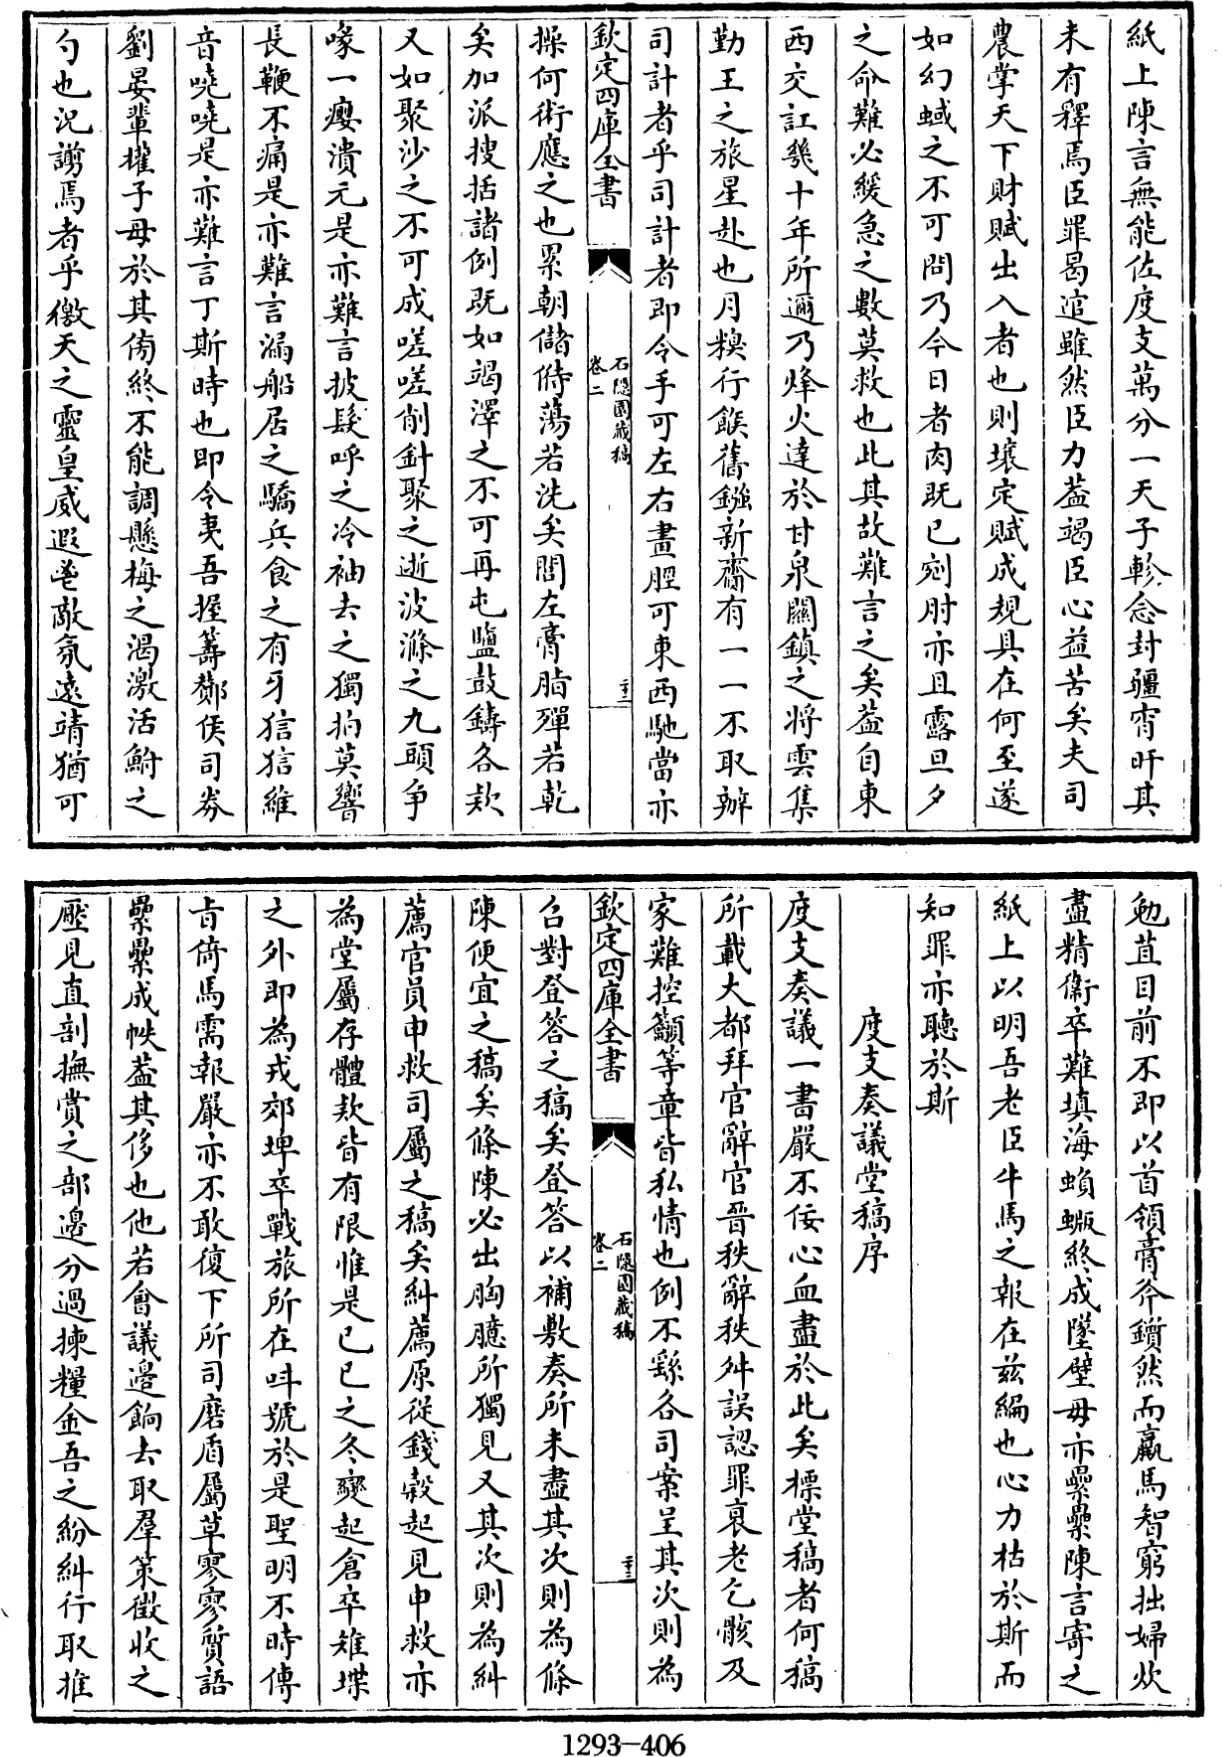 紙上陳言無能佐度支萬分一天子軫念封疆宵旰其
未有釋焉臣罪曷逭雖然臣力葢竭臣心益苦矣夫司
農掌天下財賦出入者也則壤定賦成規具在何至遂
如幻蜮之不可問乃今日者肉既已剜肘亦且露旦夕
之命難必緩急之數莫救也此其故難言之矣葢自東
西交訌幾十年所邇乃烽火達於甘泉關鎮之将雲集
勤王之旅星赴也月糗行餱舊鏹新齎有一一不取辦
司計者乎司計者即令手可左右畫脛可東西馳當亦
欽定四庫全書
石隱園藏稿
卷二
二十二
操何術應之也累朝儲偫蕩若洗矣閭左膏脂殫若乾
矣加派搜括諸例既如竭澤之不可再屯鹽鼓鑄各欵
又如聚沙之不可成嗟嗟削針聚之逝波滌之九頭争
喙一癭潰元是亦難言披髮呼之冷袖去之獨拍莫響
長鞭不痛是亦難言漏船居之驕兵食之有牙狺狺維
音嘵嘵是亦難言丁斯時也即令夷吾握籌酇侯司劵
劉晏輩搉子母於其傍終不能調懸梅之渴激活鮒之
勺也況謭焉者乎徼天之靈皇威遐鬯敵氛遠靖猶可
勉苴目前不即以首領膏斧鑕然而羸馬智窮拙婦炊
盡精衛卒難填海蝜蝂終成墜壁毋亦纍纍陳言寄之
紙上以明吾老臣牛馬之報在兹編也心力枯於斯而
知罪亦聽於斯
度支奏議堂稿序
度支奏議一書嚴不佞心血盡於此矣標堂稿者何稿
所載大都拜官辭官晉秩辭秩舛誤認罪衰老乞骸及
家難控籲等章皆私情也例不繇各司案呈其次則為
欽定四庫全書
石隱園藏稿
卷二
二十三
召對登答之稿矣登答以補敷奏所未盡其次則為條
陳便宜之稿矣條陳必出胸臆所獨見又其次則為糾
薦官員申救司屬之稿矣糾薦原從錢穀起見申救亦
為堂屬存體欵皆有限惟是己巳之冬變起倉卒雉堞
之外即為戎郊埤卒戰旅所在呌號於是聖明不時傳
㫖倚馬需報嚴亦不敢復下所司磨盾屬草寥寥質語
纍纍成帙葢其侈也他若會議邉餉去取羣策徴收之
壓見直剖撫賞之部邉分過揀糧金吾之紛糾行取推
1293-406